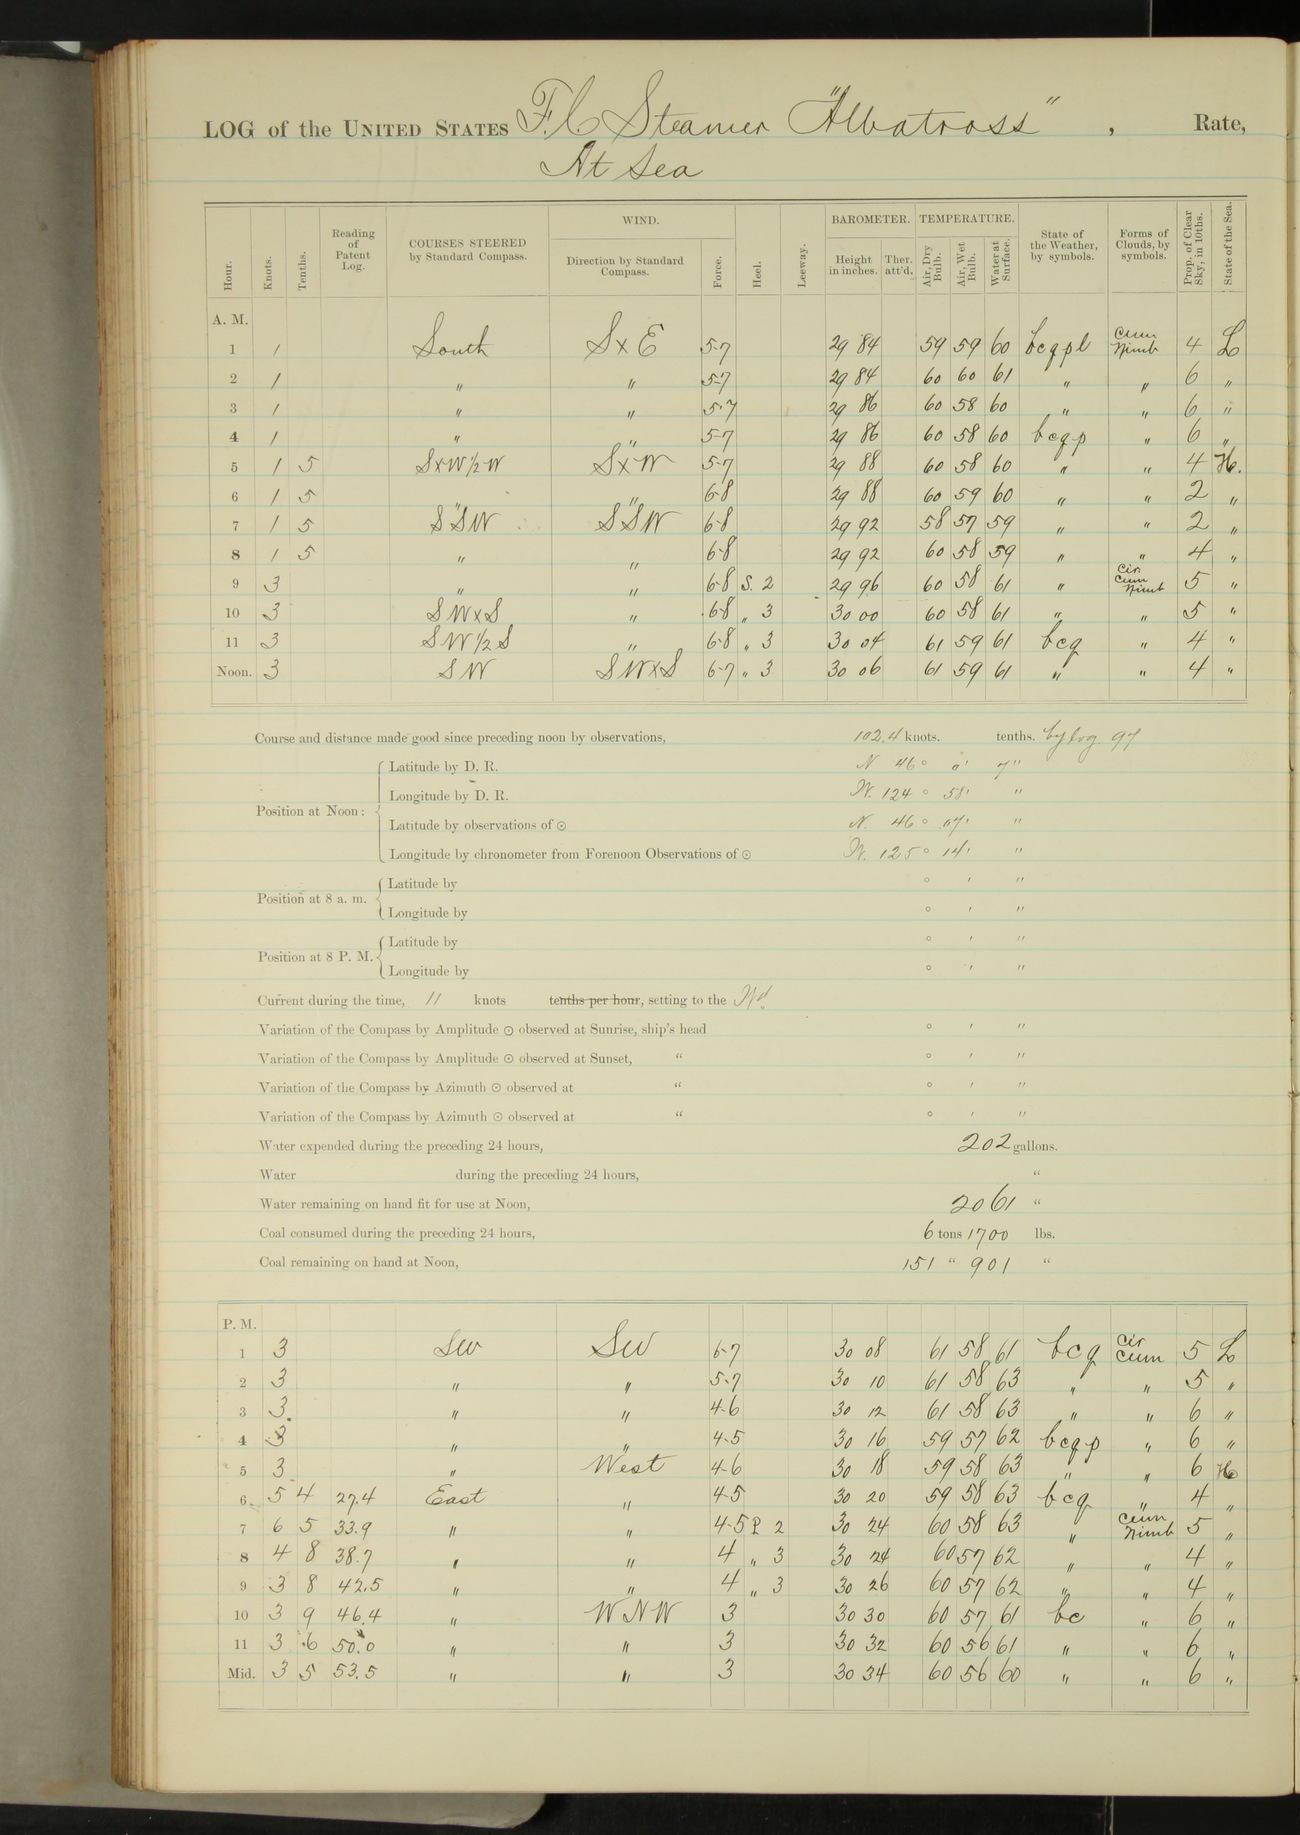 LOG of the UNITED STATES F.C. Steamer "Albatross", Rate,
At Sea
Hour. Knots. Tenths. Reading of Patent Log. COURSES STEERED by Standard Compass. WIND. Direction by Standard Compass. Force. Heel. Leeway. BAROMETER. Height in inches. Ther. att'd. TEMPERATURE. Air, Dry Bulb. Air, Wet Bulb. Water at Surface. State of the Weather, by symbols. Forms of Clouds, by symbols. Prop. of Clear Sky, in 10ths. State of the Sea.
A. M.
1 1 South SxE 5-7 29 84 59 59 60 bcqpl Cum Nimb 4 L
2 1 " " 5-7 29 84 60 60 61 " " 6 "
3 1 " " 5-7 29 86 60 58 60 " " 6 "
4 1 " " 5-7 29 86 60 58 60 bcqp " 6 "
5 1 5 SxW½W SxW 5-7 29 88 60 58 60 " " 4 H.
6 1 5 " " 6-8 29 88 60 59 60 " " 2 "
7 1 5 SSW SSW 6-8 29 92 58 57 59 " " 2 "
8 1 5 " " 6-8 29 92 60 58 59 " " 4 "
9 3 " " 6-8 S. 2 29 96 60 58 61 " Cir. Cum Nimb 5 "
10 3 SWxS " 6-8 " 3 30 00 60 58 61 " " 5 "
11 3 SW½S " 6-8 " 3 30 04 61 59 61 bcq " 4 "
Noon. 3 SW SWxS 6-7 " 3 30 06 61 59 61 " " 4 "
Course and distance made good since preceding noon by observations, 102.4 knots. tenths. by log. 97
Position at Noon:
Latitude by D. R. N 46° 0' 7"
Longitude by D. R. W. 124° 58' "
Latitude by observations of ☉ N. 46° 07' "
Longitude by chronometer from Forenoon Observations of ☉ W. 125° 14' "
Position at 8 a. m.
Latitude by ° ' "
Longitude by ° ' "
Position at 8 P. M.
Latitude by ° ' "
Longitude by ° ' "
Current during the time, 11 knots tenths per hour, setting to the Nd.
Variation of the Compass by Amplitude ☉ observed at Sunrise, ship's head ° ' "
Variation of the Compass by Amplitude ☉ observed at Sunset, " ° ' "
Variation of the Compass by Azimuth ☉ observed at " ° ' "
Variation of the Compass by Azimuth ☉ observed at " ° ' "
Water expended during the preceding 24 hours, 202 gallons.
Water during the preceding 24 hours, "
Water remaining on hand fit for use at Noon, 2061 "
Coal consumed during the preceding 24 hours, 6 tons 1700 lbs.
Coal remaining on hand at Noon, 151 " 901 "
P. M.
1 3 SW SW 6-7 30 08 61 58 61 bcq Cir Cum 5 L
2 3 " " 5-7 30 10 61 58 63 " " 5 "
3 3. " " 4-6 30 12 61 58 63 " " 6 "
4 3 " " 4-5 30 16 59 57 62 bcqp " 6 "
5 3 " West 4-6 30 18 59 58 63 " " 6 H
6 5 4 27.4 East " 4-5 30 20 59 58 63 bcq " 4 "
7 6 5 33.9 " " 4-5 P 2 30 24 60 58 63 " Cum Nimb 5 "
8 4 8 38.7 " " 4 " 3 30 24 60 57 62 " " 4 "
9 3 8 42.5 " " 4 " 3 30 26 60 57 62 " " 4 "
10 3 9 46.4 " WNW 3 30 30 60 57 61 bc " 6 "
11 3 6 50.0 " " 3 30 32 60 56 61 " " 6 "
Mid. 3 5 53.5 " " 3 30 34 60 56 60 " " 6 "